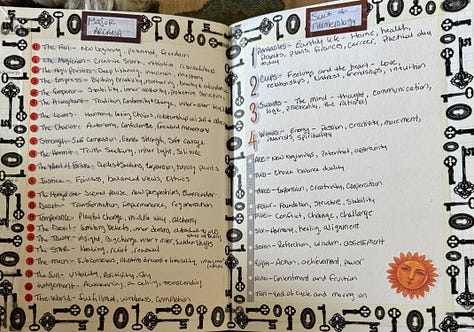 Major
ARCANA
The Fool - New beginning, potential, freedom
The Magician - Creative Spark, intuition,
The High Priestess - Deep knowing, intuition, mystery
The Empress -
The Emperor - Stability, inner authority,
The Hierophant - Tradition, Conformity,
The Lovers - Harmony, loving choices, relationship w/ self & others
The Chariot - Autonomy, confidence, forward movement
Strength - Self Compassion, inner strength, soft courage
The Hermit - Truth Seeking, inner light, solitude
The Wheel of Fortune - Cycles & Seasons, Expansion,
Justice - Fairness, balanced views, ethics
The Hanged One - Sacred pause, new perspective, Surrender
Death - Transformation, Impermanence, regeneration
Temperance - Playful Change, middle way, alchemy
The Devil - limiting beliefs, inner demons,
The Tower - insight, Big change
The Star - Healing, relief, renewal
The Moon - Subconscious,
The Sun - Vitality, Positivity, Joy
Judgement - Awakening, a calling,
The World - fulfillment, wholeness, Completion
Suit &
Numerology
1 Pentacles - Earthly life - Home, health,
finances, career, Practical day
to day
2 Cups - Feelings and the heart - Love,
relationships, friendships, intuition
3 Swords - The mind - thought, communication,
logic, the rational
4 Wands - Energy - Passion, creativity, movement,
spirituality
Ace - New beginnings, Potential, opportunity
Two - Choice balance duality
Three - Expansion, creativity, cooperation
Four - Foundation, structure, stability
Five - Conflict, change, challenge
Six - Harmony, healing, alignment
Seven - Reflection, wisdom, assessment
Eight - Action, achievement, power
Nine - Contentment and fruition
Ten - End of cycle and moving on